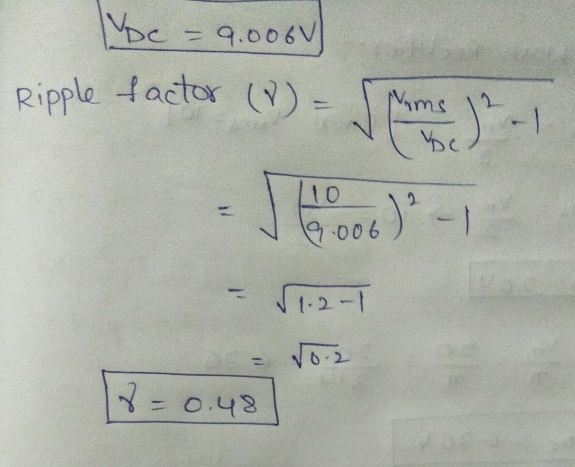 VDC = 9.006V
Ripple factor (γ) = √(Vrms/VDC)² - 1
= √(10/9.006)² - 1
= √1.2-1
= √0.2
γ = 0.48